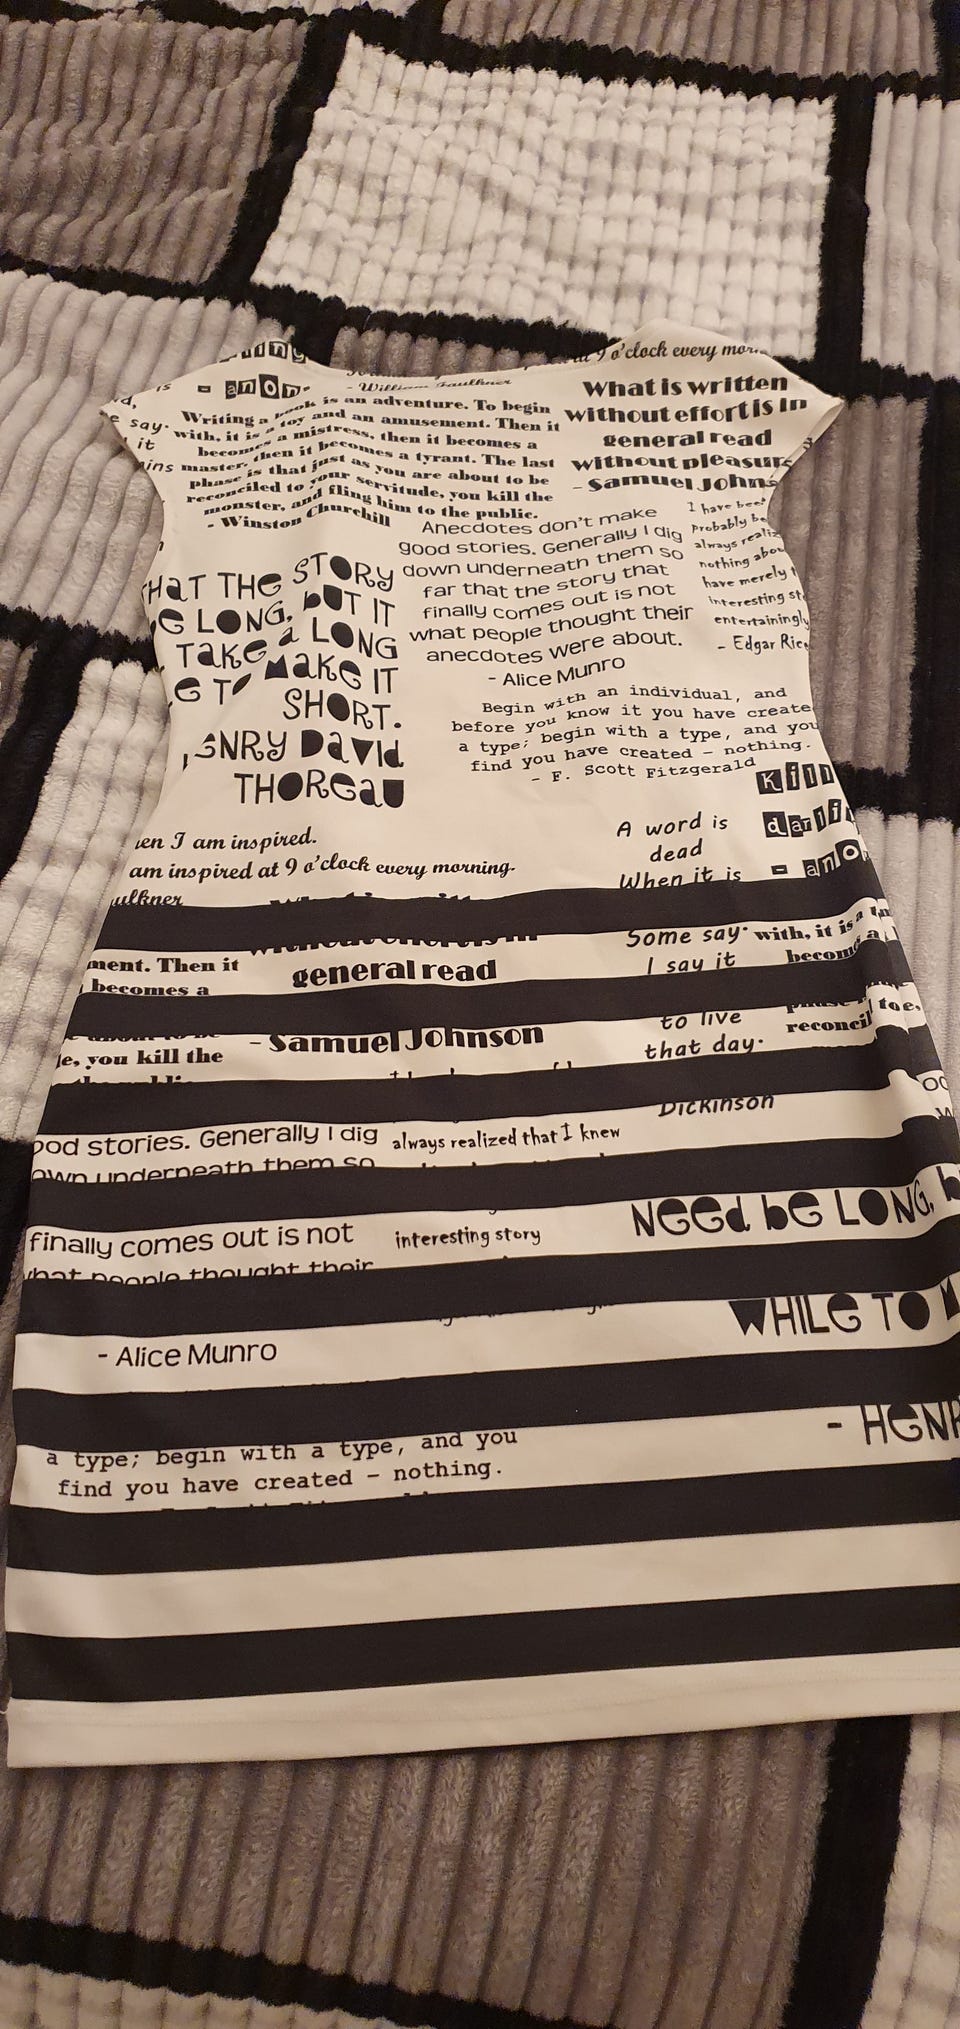 at 9 o'clock every
is
- anon.
- William Faulkner
Writing a book is an adventure. To begin
with, it is a toy and an amusement. Then it
becomes a mistress, then it becomes a
master, then it becomes a tyrant. The last
phase is that just as you are about to be
reconciled to your servitude, you kill the
monster, and fling him to the public.
- Winston Churchill
What is written
without effort is in
general read
without pleasure
- Samuel Johns
say.
it
Anecdotes don't make
good stories. Generally I dig
down underneath them so
far that the story that
finally comes out is not
what people thought their
anecdotes were about.
- Alice Munro
I have bee
Probably be
always realiz
nothing abou
have merely t
interesting st
entertainingly
- Edgar Rice
THE STORY
LONG, BUT IT
TAKE a LONG
MAKE IT
SHORT.
DAVID
THOREAU
Begin with an individual, and
before you know it you have create
a type; begin with a type, and you
find you have created - nothing.
- F. Scott Fitzgerald
Kill
darlin
- anon
en I am inspired.
am inspired at 9 o'clock every morning.
ulkner
A word is
dead
When it is
Some say.
I say it
to live
that day.
Dickinson
with, it is a
becom
reconcil
toe,
ment. Then it
becomes a
general read
e, you kill the
- Samuel Johnson
ood stories. Generally I dig
own underneath them so
always realized that I knew
finally comes out is not
what people thought their
interesting story
NEED BE LONG,
WHILE TO M
- Alice Munro
- HENR
a type; begin with a type, and you
find you have created - nothing.